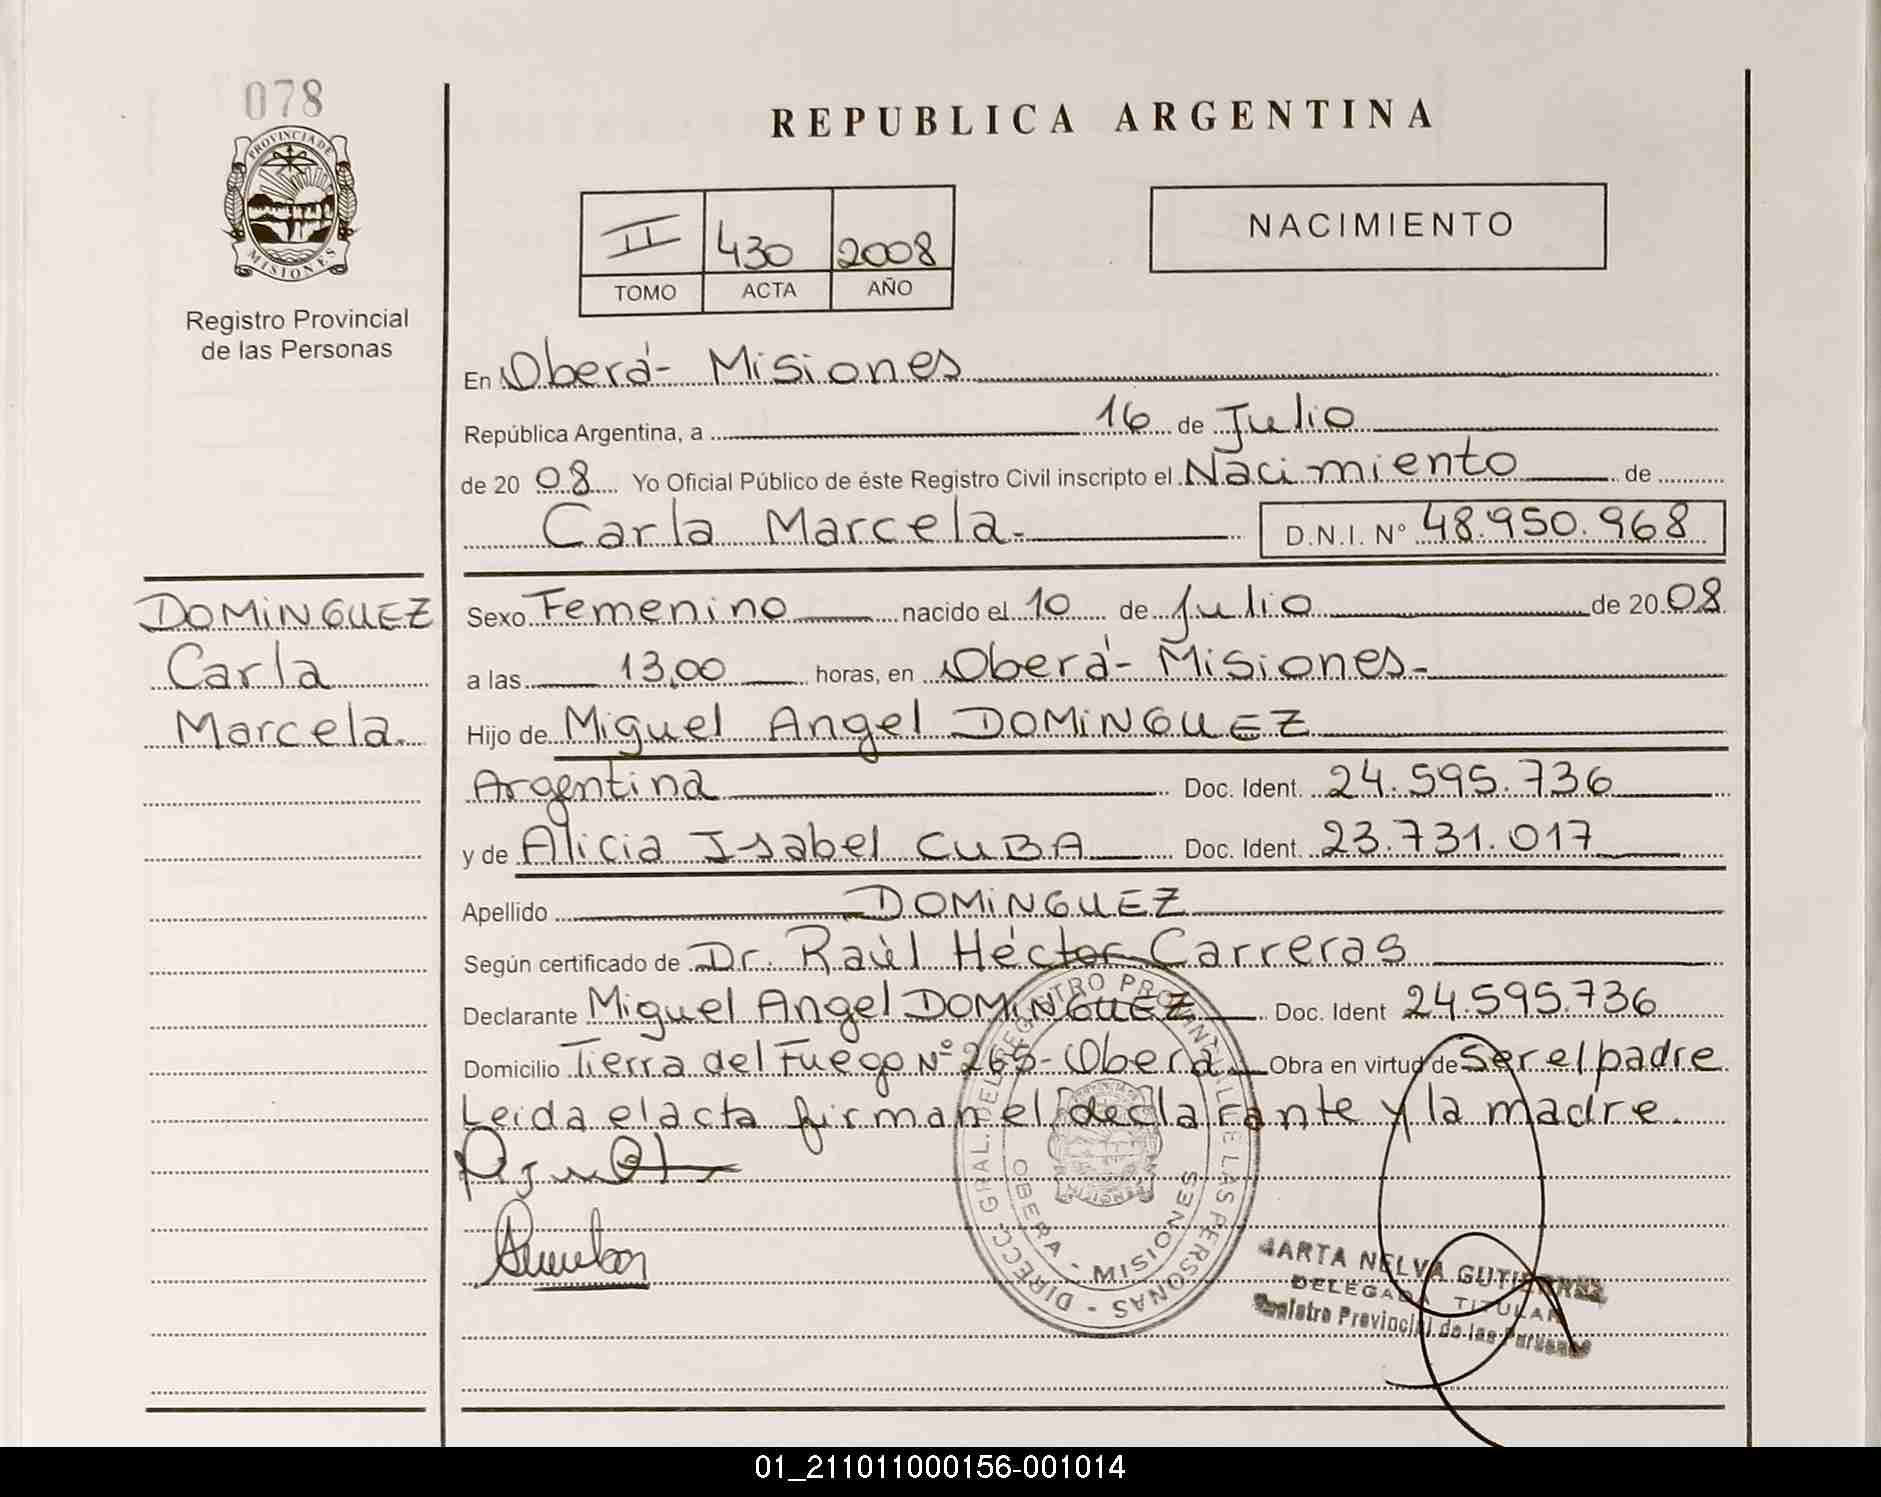 078
PROVINCIA DE
MISIONES
Registro Provincial
de las Personas
REPUBLICA ARGENTINA
II 430 2008
TOMO ACTA AÑO
NACIMIENTO
En Oberá- Misiones
República Argentina, a 16 de Julio
de 20 08 Yo Oficial Público de éste Registro Civil inscripto el Nacimiento de
Carla Marcela. D.N.I. Nº 48.950.968
DOMINGUEZ
Carla
Marcela.
Sexo Femenino nacido el 10 de Julio de 20 08
a las 13,00 horas, en Oberá- Misiones-
Hijo de Miguel Angel DOMINGUEZ
Argentina Doc. Ident. 24.595.736
y de Alicia Isabel CUBA Doc. Ident. 23.731.017
Apellido DOMINGUEZ
Según certificado de Dr. Raúl Héctor Carreras
Declarante Miguel Angel DOMINGUEZ Doc. Ident 24.595.736
Domicilio Tierra del Fuego Nº 265- Oberá Obra en virtud de Ser el padre
Leida el acta firman el declarante y la madre.
DIRECC. GRAL. DEL REGISTRO PROVINCIAL DE LAS PERSONAS -
OBERA - MISIONES
MARTA NELVA GUTIERREZ
DELEGADA TITULAR
Registro Provincial de las Personas
01_211011000156-001014